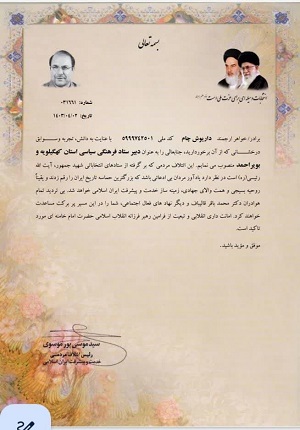 بسمه تعالی
انتخابات وسیله ای برای عزت ملی است
شماره: ۰۳۱۹۹۱
تاریخ: ۱۴۰۳/۰۴/۰۲
برادر/خواهر ارجمند داریوش چام کد ملی ۵۹۹۹۷۴۲۵۰۱ با عنایت به دانش، تجربه و سوابق
درخشانی که از آن برخوردارید، جنابعالی را به عنوان دبیر ستاد فرهنگی سیاسی استان کهگیلویه و
بویراحمد منصوب می نمایم. این ائتلاف مردمی که بر گرفته از ستادهای انتخاباتی شهید جمهور، آیت الله
رئیسی(ره) است در نظر دارد یادآور مردان بی ادعائی باشد که بزرگترین حماسه تاریخ ایران را رقم زدند و یقیناً
روحیه بسیجی و همت والای جهادی، زمینه ساز خدمت و پیشرفت ایران اسلامی خواهد شد. بی تردید تمام
هواداران دکتر محمد باقر قالیباف و دیگر نهاد های فعال اجتماعی، شما را در این مسیر پر برکت مساعدت
خواهند کرد. امانت داری انقلابی و تبعیت از فرامین رهبر فرزانه انقلاب اسلامی حضرت امام خامنه ای مورد
تاکید است.
موفق و مؤید باشید.
سید موسی پور موسوی
رئیس ائتلاف مردمی
خدمت و پیشرفت ایران اسلامی